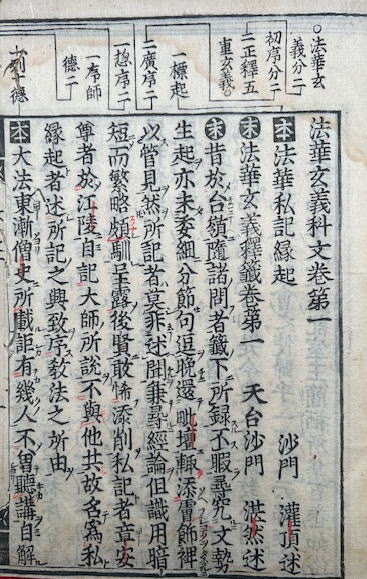 ○法華玄
義分二
初序分二
二正釋五
重玄義○
一標起
二廣序二
一揔序二
一序師
德二
法華玄義科文卷第一
本 法華私記緣起 沙門 灌頂述
末 法華玄義釋籤卷第一 天台沙門 湛然述
末 昔於台嶺隨諸問者籤下所録不暇尋究文勢
生起亦未委細分節句逗晚還毗壇輒添膚飾裨
以管見然所記者莫非述聞兼尋經論但識用暗
短而繁略頗馴呈露後賢敢悕添削私記者章安
尊者於江陵自記大師所說不與他共故名爲私
緣起者述所記之興致序教法之所由
本 大法東漸僧史所載詎有幾人不曾聽講自解